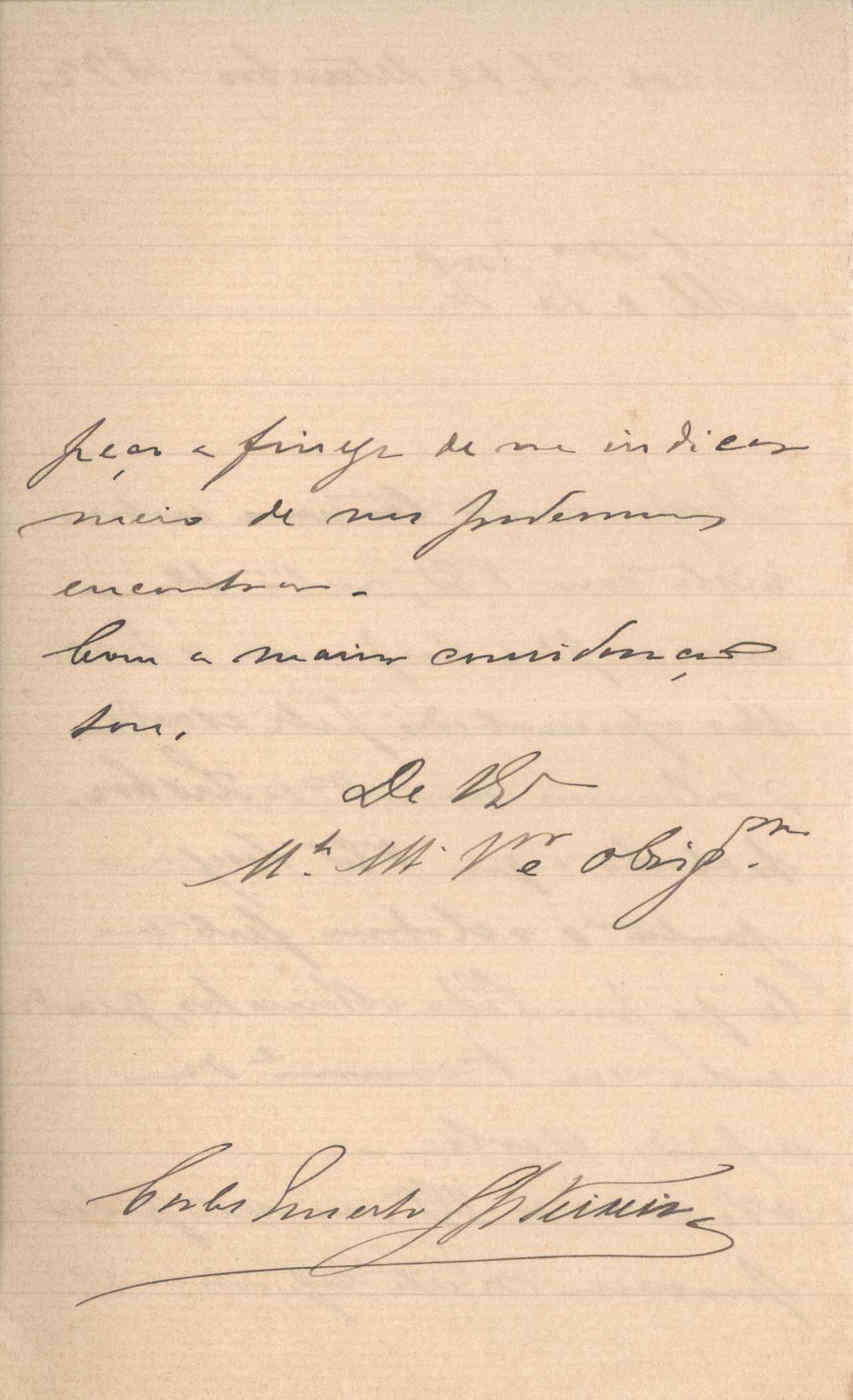 peço a fineza de me indicar
meio de nos podermos
encontrar.
Com a maior consideração
sou,
De V. Ex.ª
M.to At.to V.or e obrig.mo
Carlos Teixeira